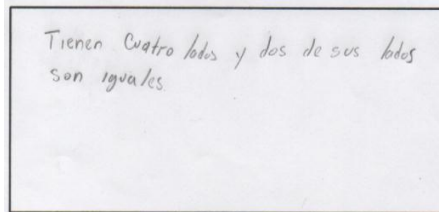 Tienen Cuatro lados y dos de sus lados
son iguales